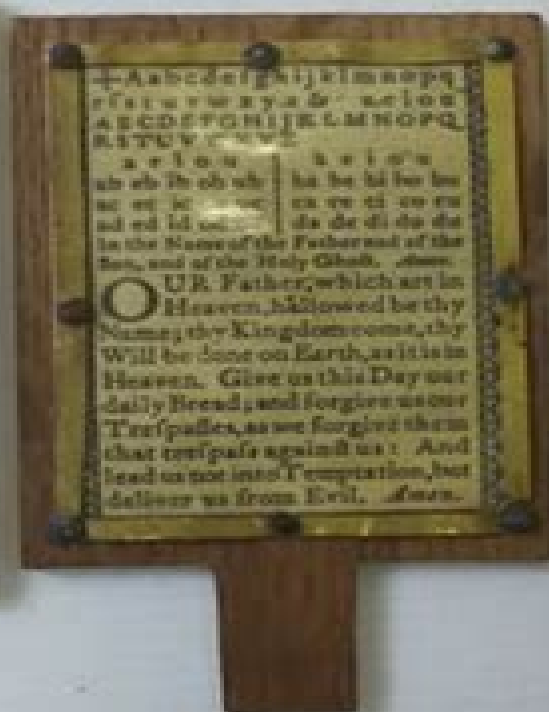 +Aabcdefghijklmnopq
rſstuvwxyz& aeiou
ABCDEFGHIJKLMNOPQ
RSTUV
a e i o u a e i o u
ab eb ib ob ub ba be bi bo bu
ac ec ic uc ca ce ci co cu
ad ed id da de di do du
In the Name of the Father and of the
Son, and of the Holy Ghost. Amen.
OUR Father, which art in
Heaven, hallowed be thy
Name; thy Kingdom come, thy
Will be done on Earth, as it is in
Heaven. Give us this Day our
daily Bread; and forgive us our
Treſpaſſes, as we forgive them
that treſpaſs againſt us: And
lead us not into Temptation, but
deliver us from Evil. Amen.